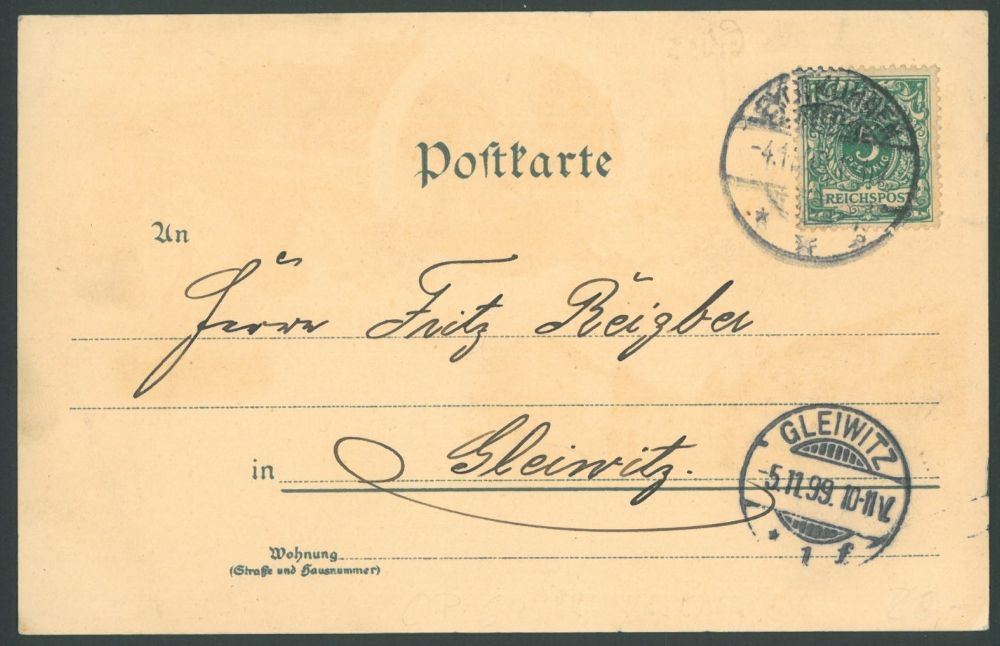 Postkarte
5
PFENNIG
REICHSPOST
An
Herrn Fritz Reigber
in Gleiwitz.
GLEIWITZ
-5.11.99. 10-11 V.
* 1 f
Wohnung
(Straße und Hausnummer)